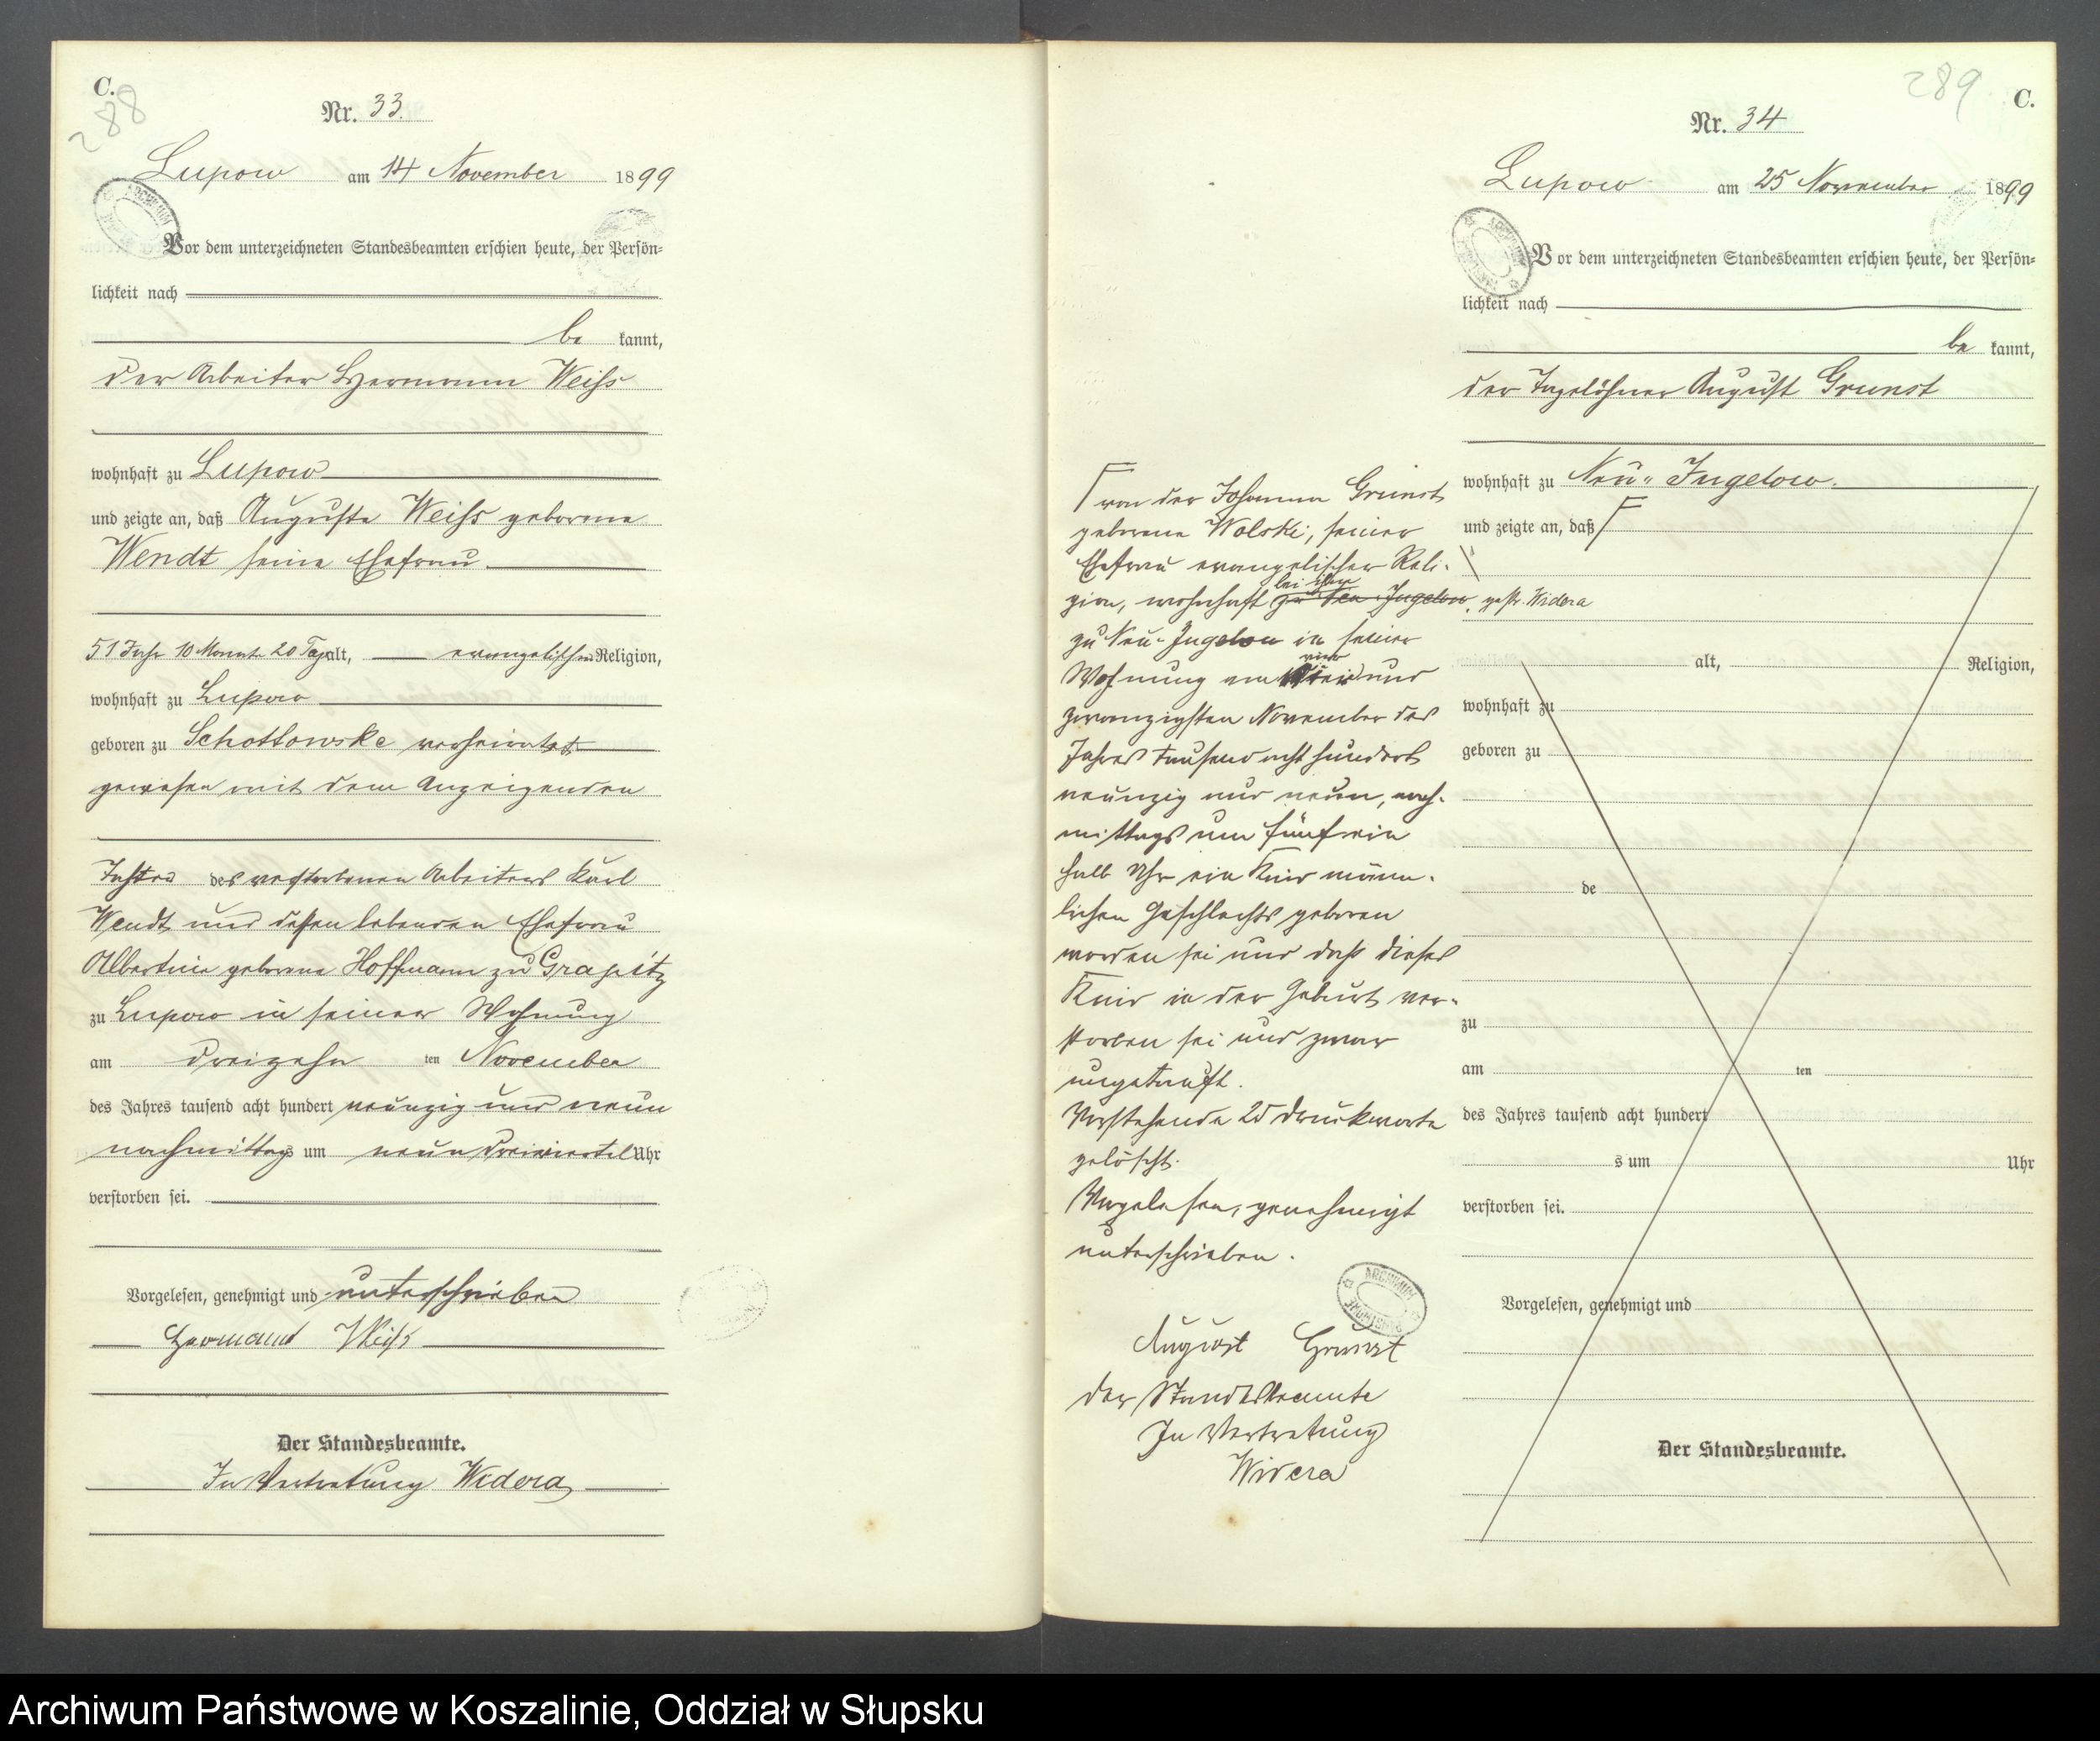 C.
288
Nr. 33.
Lupow am 14 November 1899
Vor dem unterzeichneten Standesbeamten erschien heute, der Persön-
lichkeit nach
be kannt,
der Arbeiter Hermann Weiß
wohnhaft zu Lupow
und zeigte an, daß Auguste Weiß geborene
Wendt seine Ehefrau
51 Jahr 10 Monat 20 Tage alt, evangelischer Religion,
wohnhaft zu Lupow
geboren zu Schottowske verheirathet
gewesen mit dem Anzeigenden
Tochter des verstorbenen Arbeiters Karl
Wendt und dessen lebenden Ehefrau
Albertine geborene Hoffmann zu Grapitz
zu Lupow in seiner Wohnung
am dreizehn ten November
des Jahres tausend acht hundert neunzig und neun
nachmittags um neun dreiviertel Uhr
verstorben sei.
Vorgelesen, genehmigt und unterschrieben
Hermann Weiß
Der Standesbeamte.
In Vertretung Widera
289
C.
Nr. 34
Lupow am 25 November 1899
Vor dem unterzeichneten Standesbeamten erschien heute, der Persön-
lichkeit nach
be kannt,
der Tagelöhner August Grunst
wohnhaft zu Neu-Jugelow.
und zeigte an, daß
von der Johanna Grunst
geborene Wolski, seiner
Ehefrau evangelischer Reli-
gion, wohnhaft bei ihm zu Neu Jugelow, gestr. Widera
zu Neu-Jugelow in seiner
Wohnung am vier und
zwanzigsten November des
Jahres tausend acht hundert
neunzig und neun, nach-
mittags um fünf ein
halb Uhr ein Kind männ-
lichen Geschlechts geboren
worden sei und daß dieses
Kind in der Geburt ver-
storben sei und zwar
ungetauft.
Vorstehende 25 Druckworte
gelöscht.
Vorgelesen, genehmigt
unterschrieben.
August Grunst
der Standesbeamte
In Vertretung
Widera
alt, Religion,
wohnhaft zu
geboren zu
de
zu
am ten
des Jahres tausend acht hundert
s um Uhr
verstorben sei.
Vorgelesen, genehmigt und
Der Standesbeamte.
Archiwum Państwowe w Koszalinie, Oddział w Słupsku